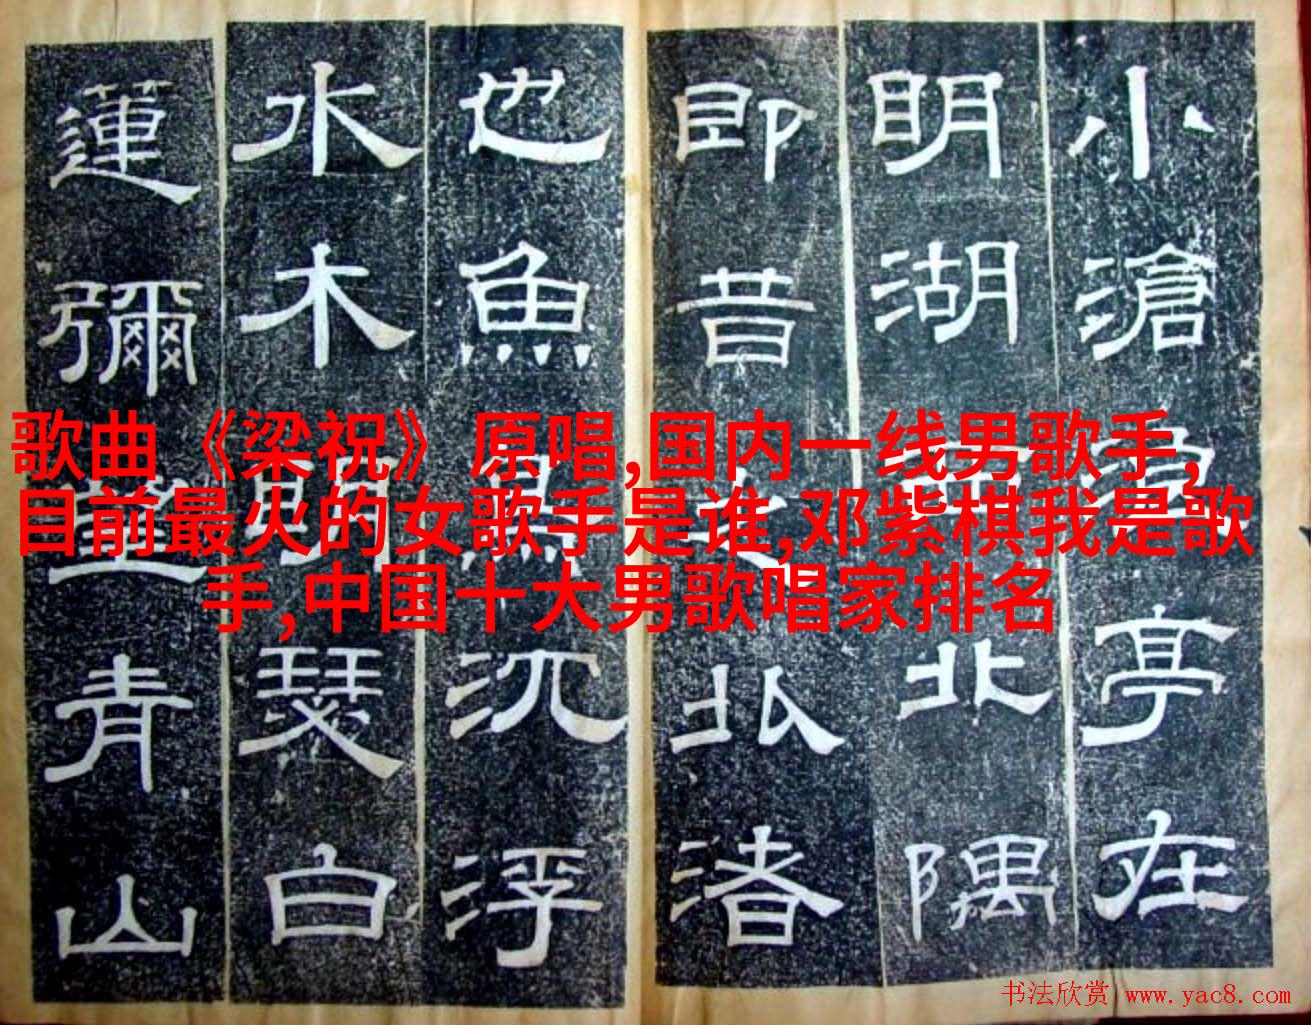 歌曲《梁祝》原唱,国内一线男歌手,
目前最火的女歌手是谁,邓紫棋我是歌
手,中国十大男歌唱家排名
小滄浪亭在
明湖北隅
即昔之北渚
也魚鳥沉浮
水木明瑟白
蓮彌望青山
书法欣赏 www.yac8.com